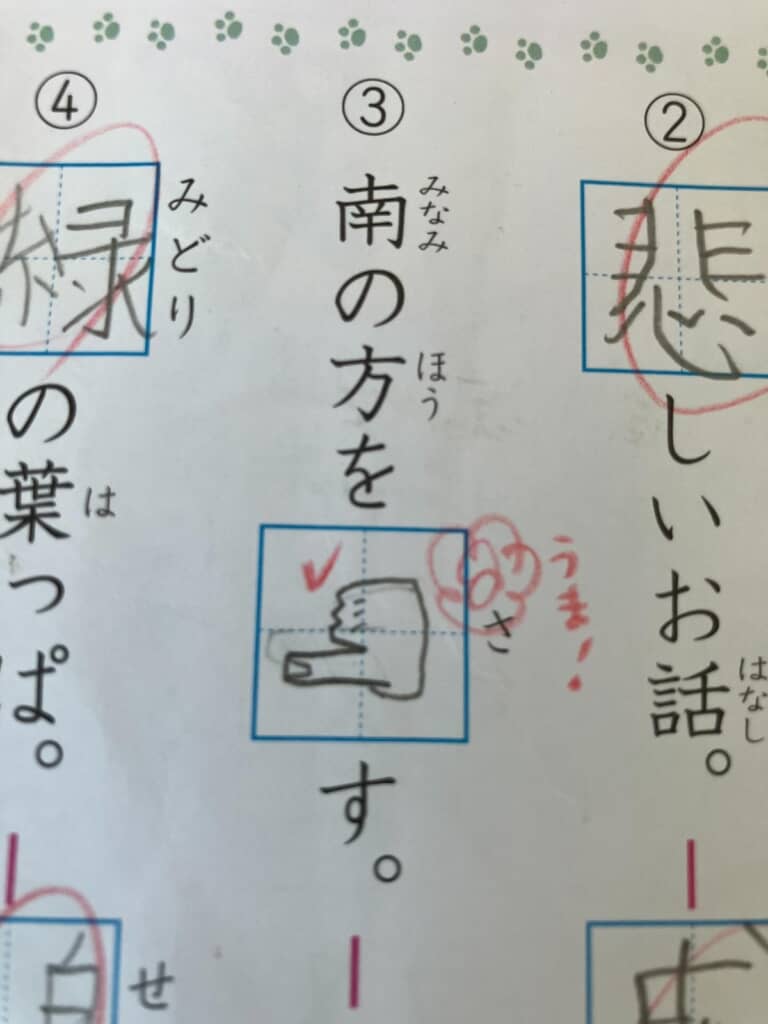 ②
悲しいお話。
はなし
③
南の方を
みなみ
ほう
さ
す。
うま!
④
緑の葉っぱ。
みどり
は
せ